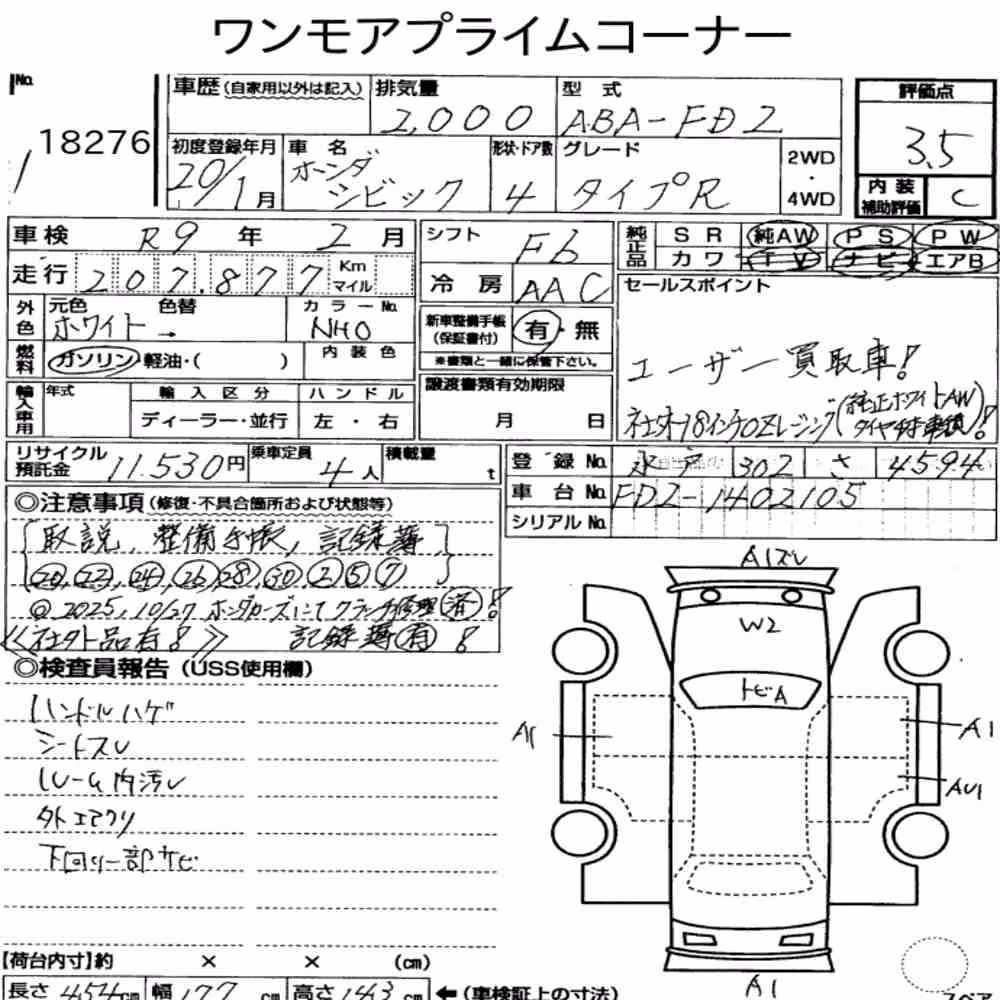 ワンモアプライムコーナー
No.
18276
1
車歴(自家用以外は記入) 排気量 型式 評価点
2,000 ABA-FD2 3.5
初度登録年月 車名 形状・ドア数 グレード 2WD・4WD
20/1月 ホンダ シビック 4 タイプR
内装補助評価 C
車検 R9年 2月 シフト F6 純正品 SR 純AW PS PW
カワ TV ナビ エアB
走行 207,877 Km マイル 冷房 AAC
セールスポイント
外色 元色 色替 カラーNo.
ホワイト → NHO
新車整備手帳(保証書付) 有・無
※書類と一緒に保管下さい。
燃料 ガソリン・軽油・( ) 内装色
ユーザー買取車!
輸入車用 年式 輸入区分 ハンドル
ディーラー・並行 左・右
譲渡書類有効期限
月 日
社外18インチOZレジング(純正ホワイトAW タイヤ付車積)!
リサイクル預託金 11,530円 乗車定員 4人 積載量 t
登録No. 水戸 302 さ 4594
車台No. FD2-1402105
シリアルNo.
◎注意事項(修復・不具合箇所および状態等)
[取説、整備手帳、記録簿]
⑳,㉒,㉔,㉖,㉘,㉚,②,⑤,⑦
@2025,10/27 ホンダカーズにてクラッチ修理(済)!
《社外品有!》 記録簿(有)!
◎検査員報告(USS使用欄)
ハンドルハゲ
シートスレ
ルーム内汚レ
外エアクリ
下回リ一部サビ
A1ズレ
W2
トビA
A1
A1
AU1
A1
【荷台内寸】約 × × (cm)
長さ 454cm 幅 177cm 高さ 143cm ←(車検証上の寸法)
スペア